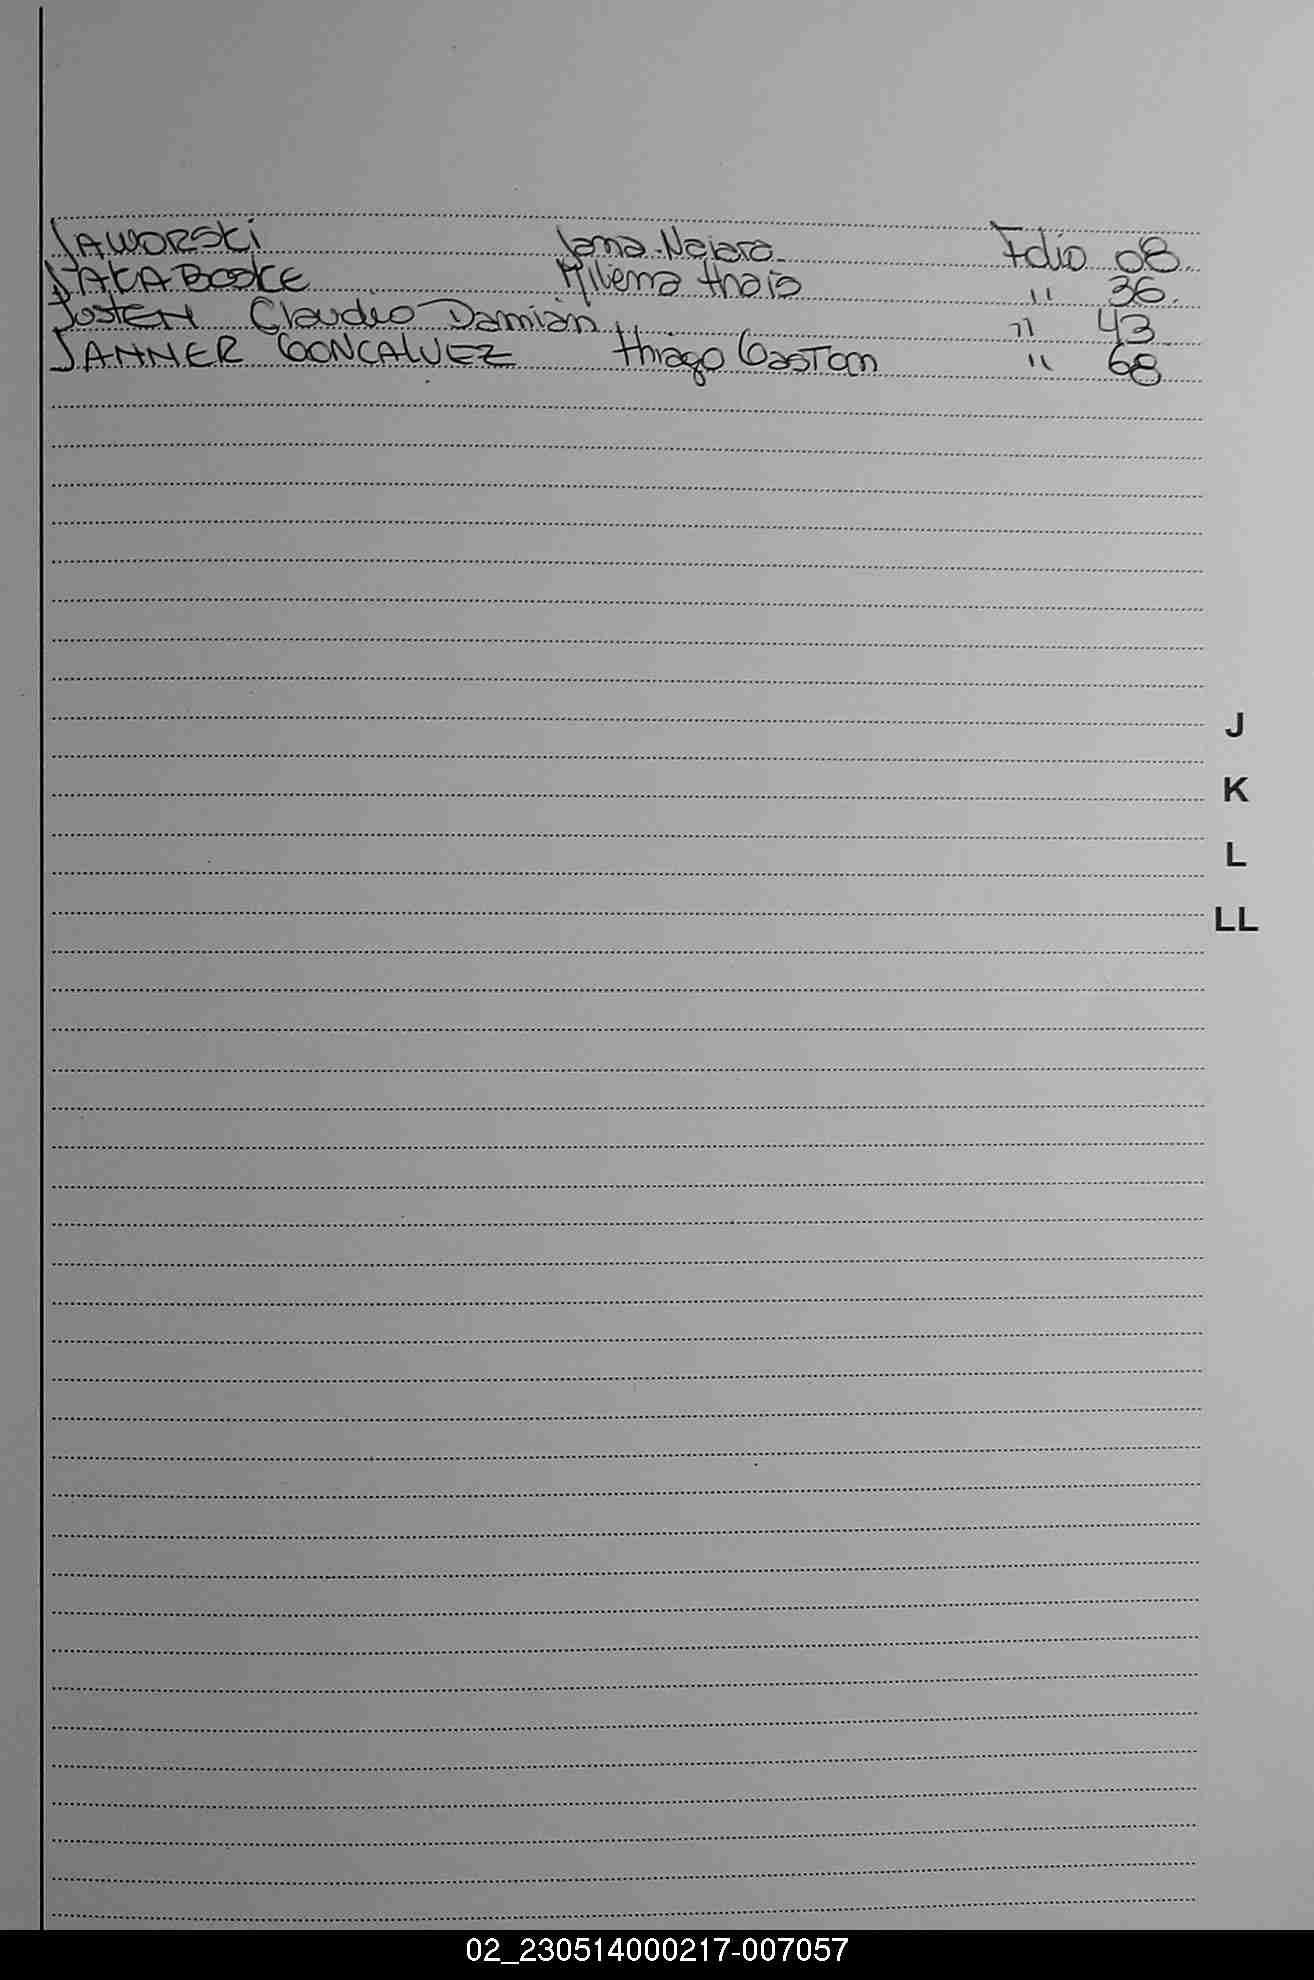 JAWORSKI Jana Najara Folio 08
JAKABOSKE Milena thais " 36
JosTEN Claudio Damián " 43
JANNER GONCALVEZ thiago Gaston " 68
J
K
L
LL
02_230514000217-007057